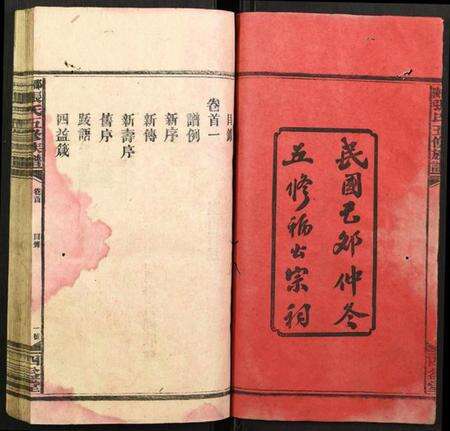 民國己卯仲冬
五修福公宗祠
目錄
卷首一
譜例
新序
新傳
新壽序
舊序
跋語
四益箴
張氏五修族譜
卷首
目錄